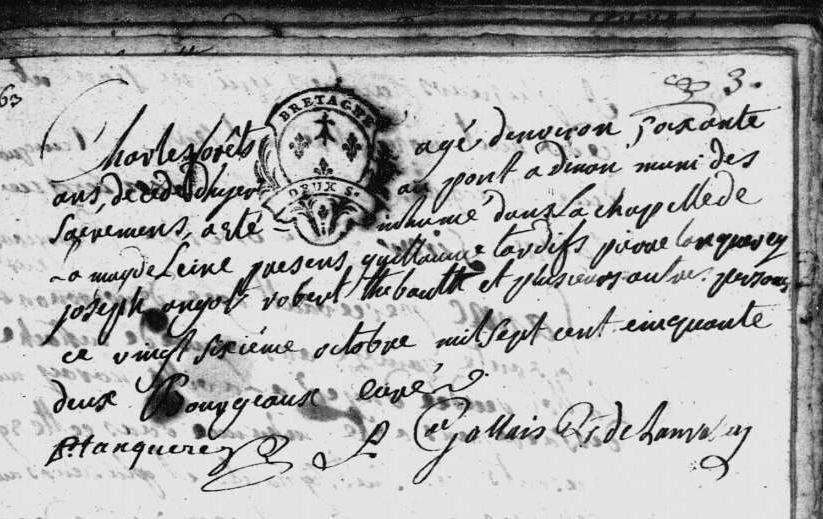 63
3.
BRETAGNE
DEUX S.
Charles forêts agé denviron soixante
ans, decedé d'hyer au pont a dinan muni des
Sacremens, a eté inhumé dans La chapelle de
La magdeLeine presens guillaume tardifs pierre tanquerey
joseph angot robert thebault et plusieurs autres person
ce vingt sixiéme octobre mil sept cent cinquante
deux Bourgeaux curé
P. tanquerey Gallais Rr de Lanvalay